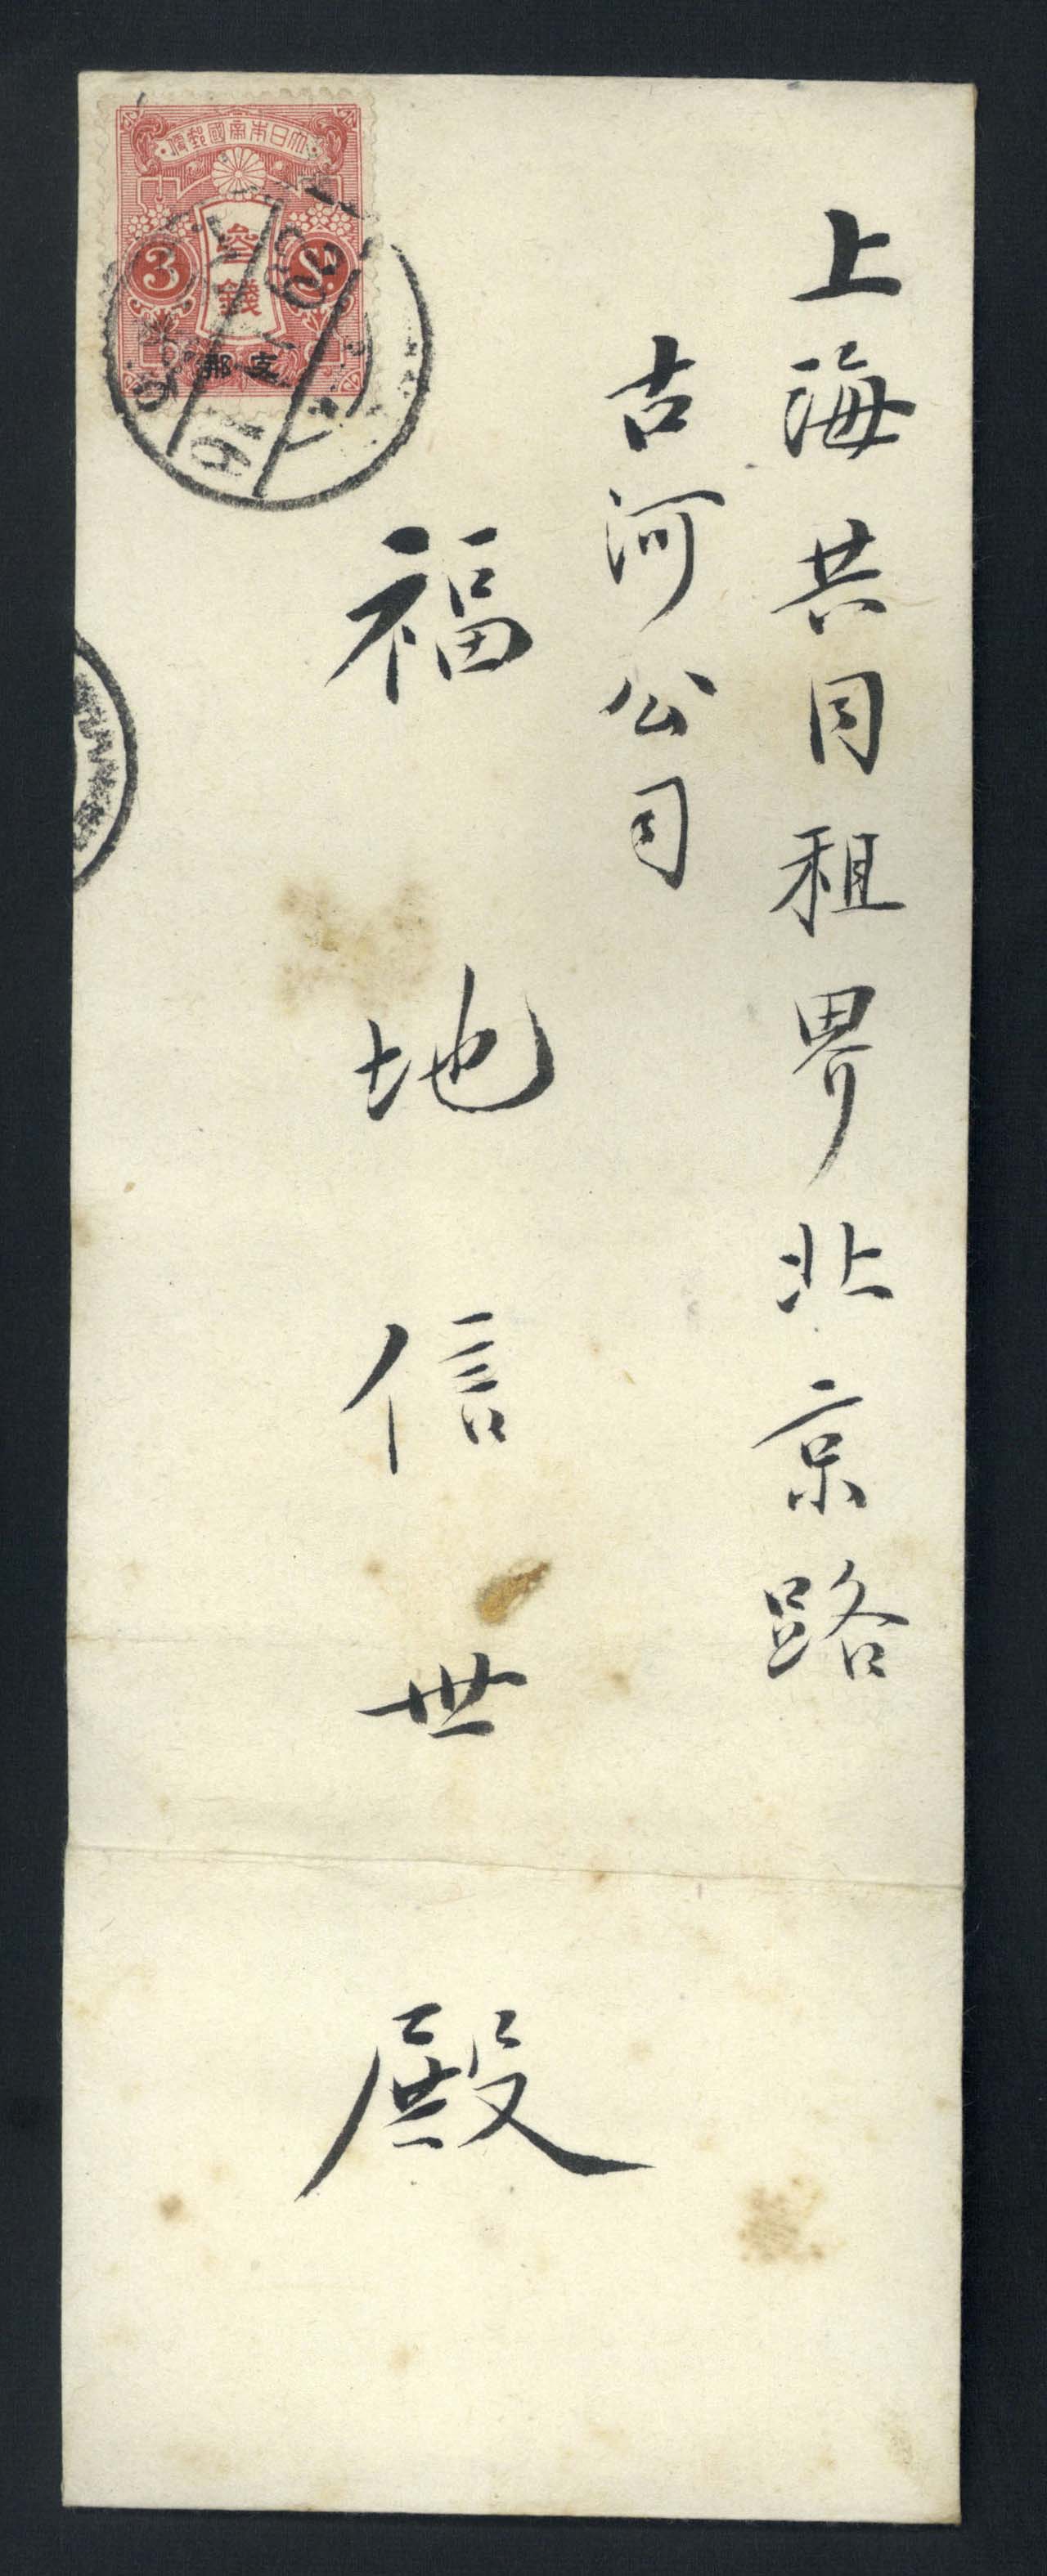 上海共同租界北京路
古河公司
福地信世
殿
大日本帝國郵便
參錢
3
Sn.
支那